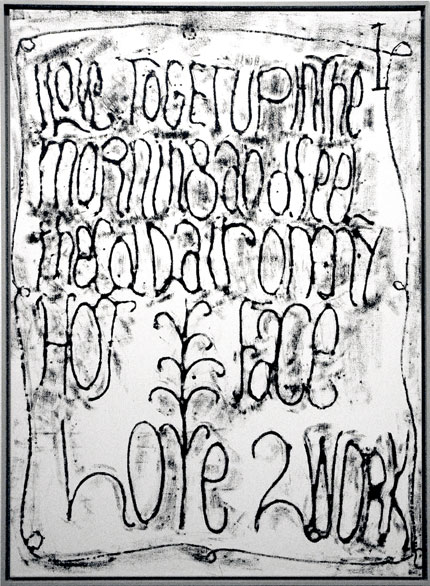 I LOve TO GET UP IN The
MORNING aNd Feel
the Cold air ON MY
HOT Face
LOve 2 WORK